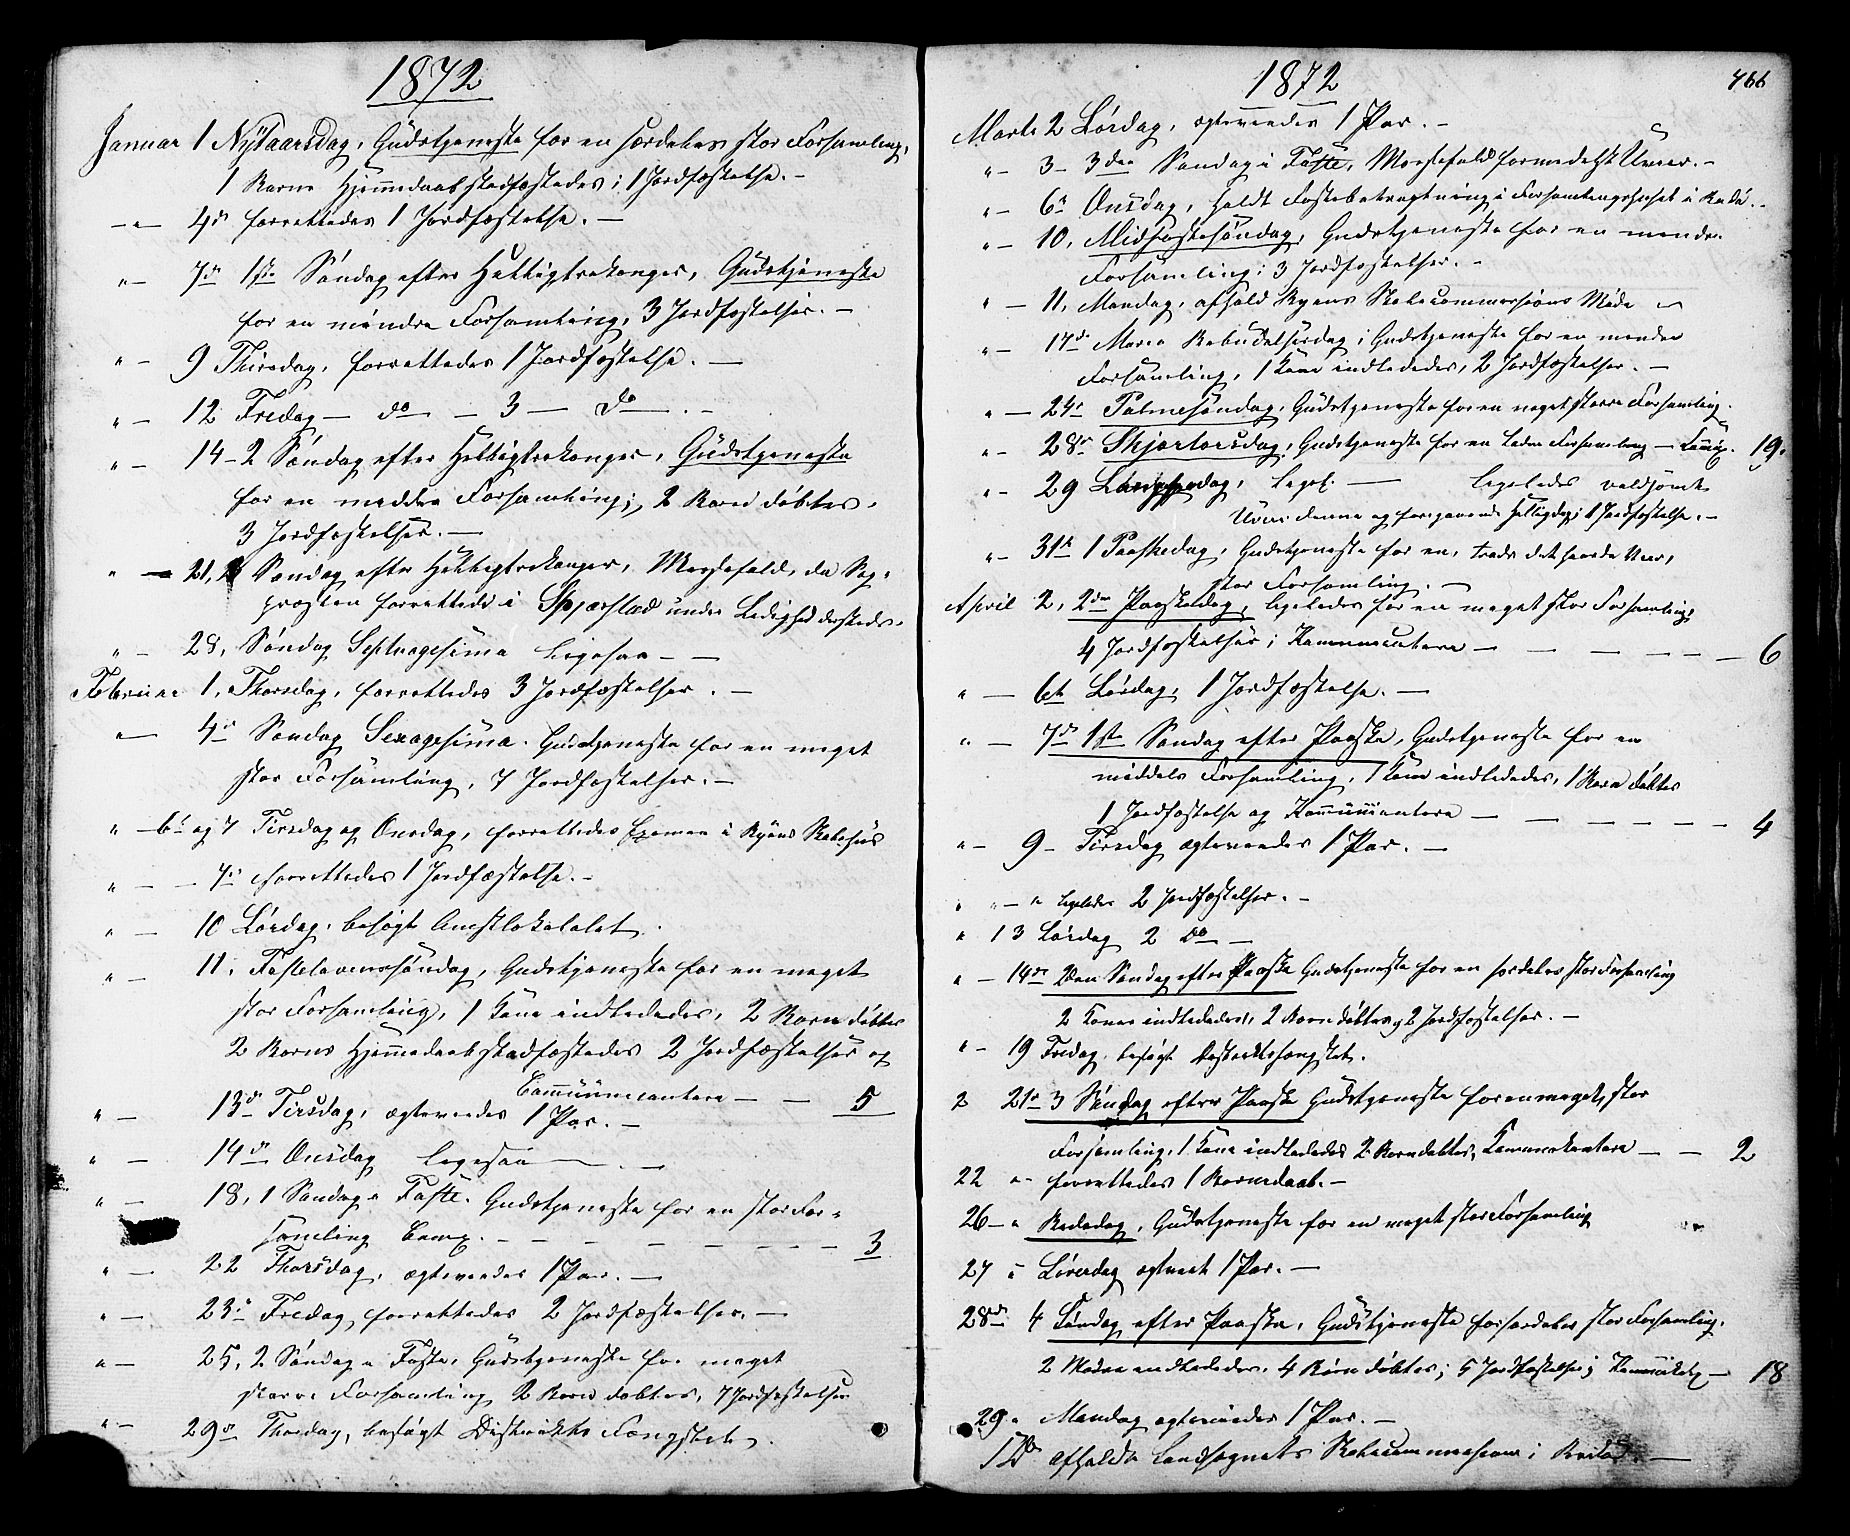 1872
Januar 1 Nÿtaarsdag, Gudstjeneste for en særdeles stor Forsamling,
1 Barns Hjemmedaab stadfæstedes; 1 Jordfæstelse. –
– " – 4de forrettedes 1 Jordfæstelse. –
" – 7de 1ste Søndag efter Helligtrekonger, Gudstjeneste
for en mindre Forsamling, 3 Jordfæstelser. –
" – 9 Thirsdag, forrettedes 1 Jordfæstelse. –
" – 12 Fredag – do – 3 – Do . –
" – 14 – 2 Søndag efter Helligtrekonger, Gudstjeneste
for en middels Forsamling; 2 Børn døbtes,
3 Jordfæstelser. –
" – 21, Søndag efter Helligtrekonger, Messefald, da Sog-
præsten forrettede i under Ledighed dersteds.
" – 28, Søndag Septuagesima Ligesaa – –
Februar 1, Thorsdag, forrettedes 3 Jordfæstelser. –
" – 4de Søndag Sexagesima. Gudstjeneste for en meget
stor Forsamling, 7 Jordfæstelser. –
" – 6te og 7 Tirsdag og Onsdag, forrettedes Examen i Byens Skolehus
" – – 7de forrettedes 1 Jordfæstelse. –
" – 10 Lørdag, besøgt Amtslokalet.
" – 11. Fastelavenssøndag, Gudstjeneste for en meget
stor Forsamling, 1 Kone indlededes, 2 Børn døbtes
2 Børns Hjemmedaab stadfæstedes 2 Jordfæstelser og
Communicantere – – 5
" – 13de Tirsdag, ægteviedes 1 Par. –
" – 14de Onsdag ligesaa – . –
" – 18, 1 Søndag i Faste. Gudstjeneste for en stor For-
samling Comm. – – – – – – – 3
" – 22 Thorsdag, ægteviedes 1 Par. –
" – 23de Fredag, forrettedes 2 Jordfæstelser. –
" – 25, 2 Søndag i Faste, Gudstjeneste for meget
større Forsamling 2 Børn døbtes, 7 Jordfæstelser
" – 29de Thorsdag, besøgt Distrikts Fængslet.
1872
466
Marts 2 Lørdag, ægteviedes 1 Par. –
" – 3 – 3die Søndag i Faste, Messefald formedelst Uveir. –
" – 6te Onsdag, holdt Fastebetragtning i Forsamlingshuset i
" – 10, Midfastesøndag, Gudstjeneste for en mindre
Forsamling; 3 Jordfæstelser. –
" – 11, Mandag, afhold Byens Skolecommissions Møde –
" – 17de Maria Bebudelsesdag; Gudstjeneste for en mindre
Forsamling, 1 Kone indlededes, 2 Jordfæstelser. –
" – 24de Palmesøndag, Gudstjeneste for en meget større Forsamling.
" – 28de Skjærtorsdag, Gudstjeneste for en liden Forsamling – Comm. 19.
" – 29 Langfredag, ligel. – ligeledes voldsomt
Uveir denne og foregaaende Helligdag; 1 Jordfæstelse. –
" – 31te 1 Paaskedag, Gudstjeneste for en, trods det haarde Veir,
stor Forsamling. –
April 2, 2den Paaskedag, ligeledes for en meget stor Forsamling;
4 Jordfæstelser; Kommunicantere – – – – – – 6
" – 6te Lørdag, 1 Jordfæstelse. –
" – 7de 1ste Søndag efter Paaske, Gudstjeneste for en
middels Forsamling, 1 Kone indlededes, 1 Barn døbtes
1 Jordfæstelse og Kommunicantere – – – – – – 4
" – 9 – Tirsdag ægteviedes 1 Par. –
" " – " ligeledes 2 Jordfæstelser. –
" 13 Lørdag 2 Do –
" – 14de 2den Søndag efter Paaske Gudstjeneste for en særdeles stor Forsamling
2 Koner indlededes, 2 Børn døbtes, 2 Jordfæstelser. –
" – 19 Fredag, besøgt
21de 3 Søndag efter Paaske Gudstjeneste for en meget stor
Forsamling, 1 Kone indlededes 2 Børn døbtes, Kommunikantere – – 2
22 " forrettedes 1 Barnedaab. –
26 – " Bededag, Gudstjeneste for en meget stor Forsamling
27 " Løverdag ægteviet 1 Par. –
28de 4 Søndag efter Paaske, Gudstjeneste for særdeles stor Forsamling.
2 indlededes, 4 Børn døbtes; 5 Jordfæstelser; – 18
29 " Mandag ægteviedes 1 Par. –
Do afholdt Landsognets Skolecommission i